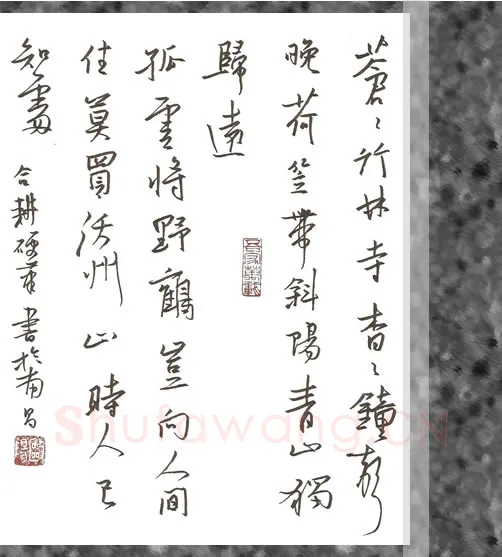 蒼々竹林寺杳々鐘聲
晚荷笠帶斜陽青山獨
歸遠
孤雲將野鶴豈向人間
住莫買沃州山時人已
知處
合耕硬筆書於南昌
Shufawang.CN